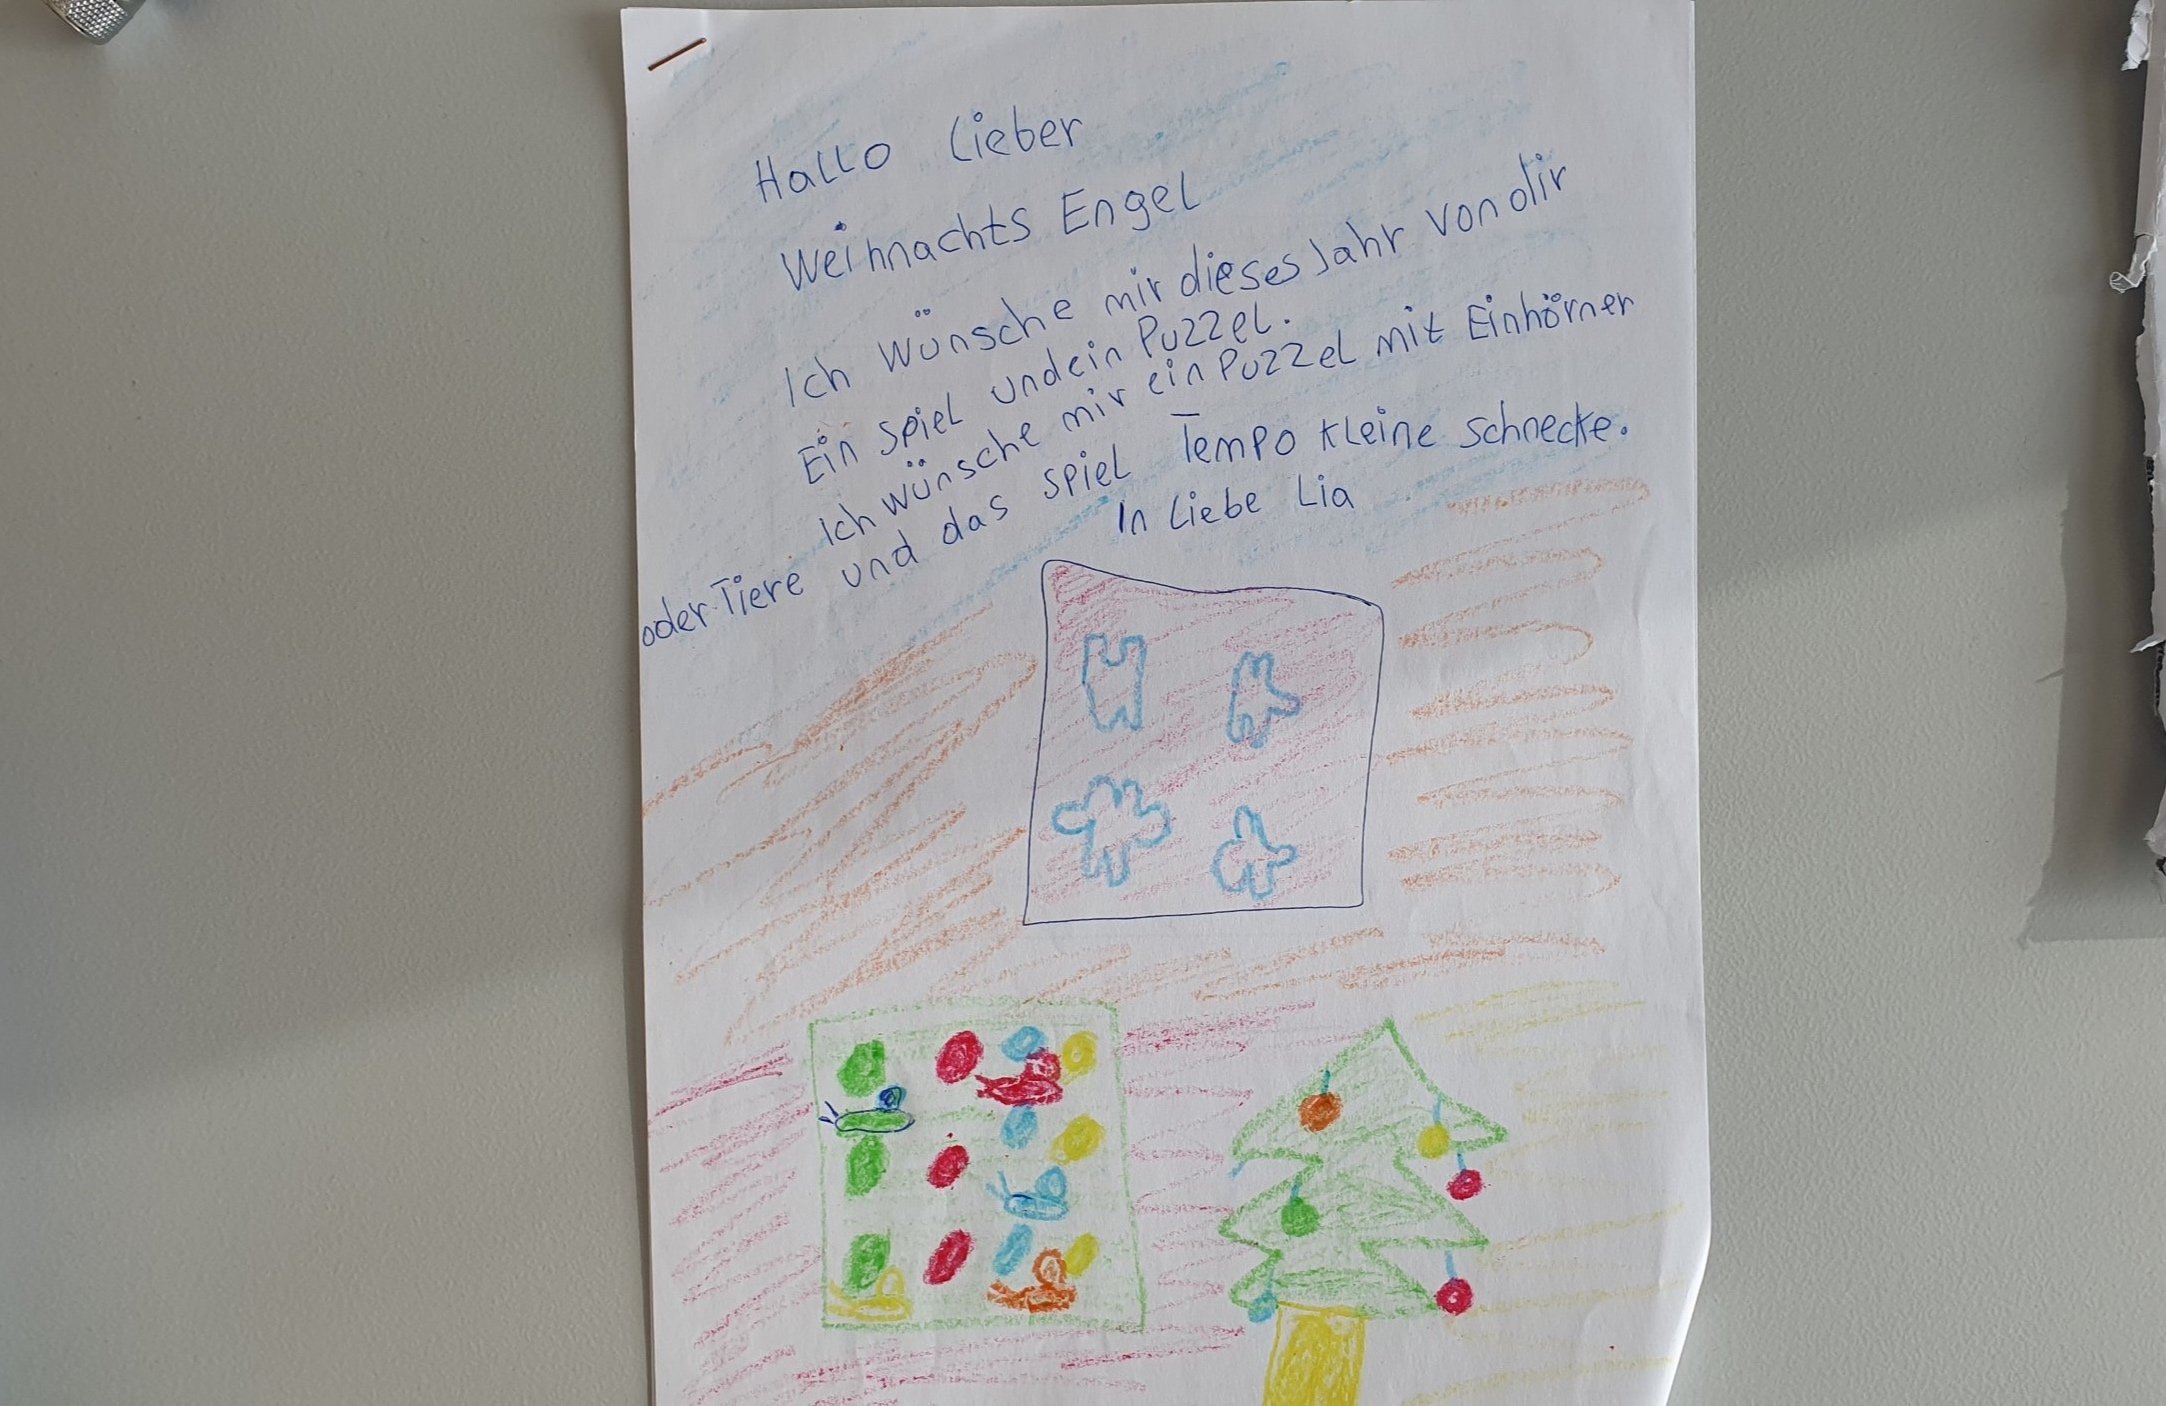 Hallo Lieber
Weihnachts Engel
Ich wünsche mir dieses Jahr von dir
Ein Spiel und ein Puzzel.
Ich wünsche mir ein Puzzel mit Einhörner
oder Tiere und das Spiel Tempo kleine Schnecke.
In Liebe Lia